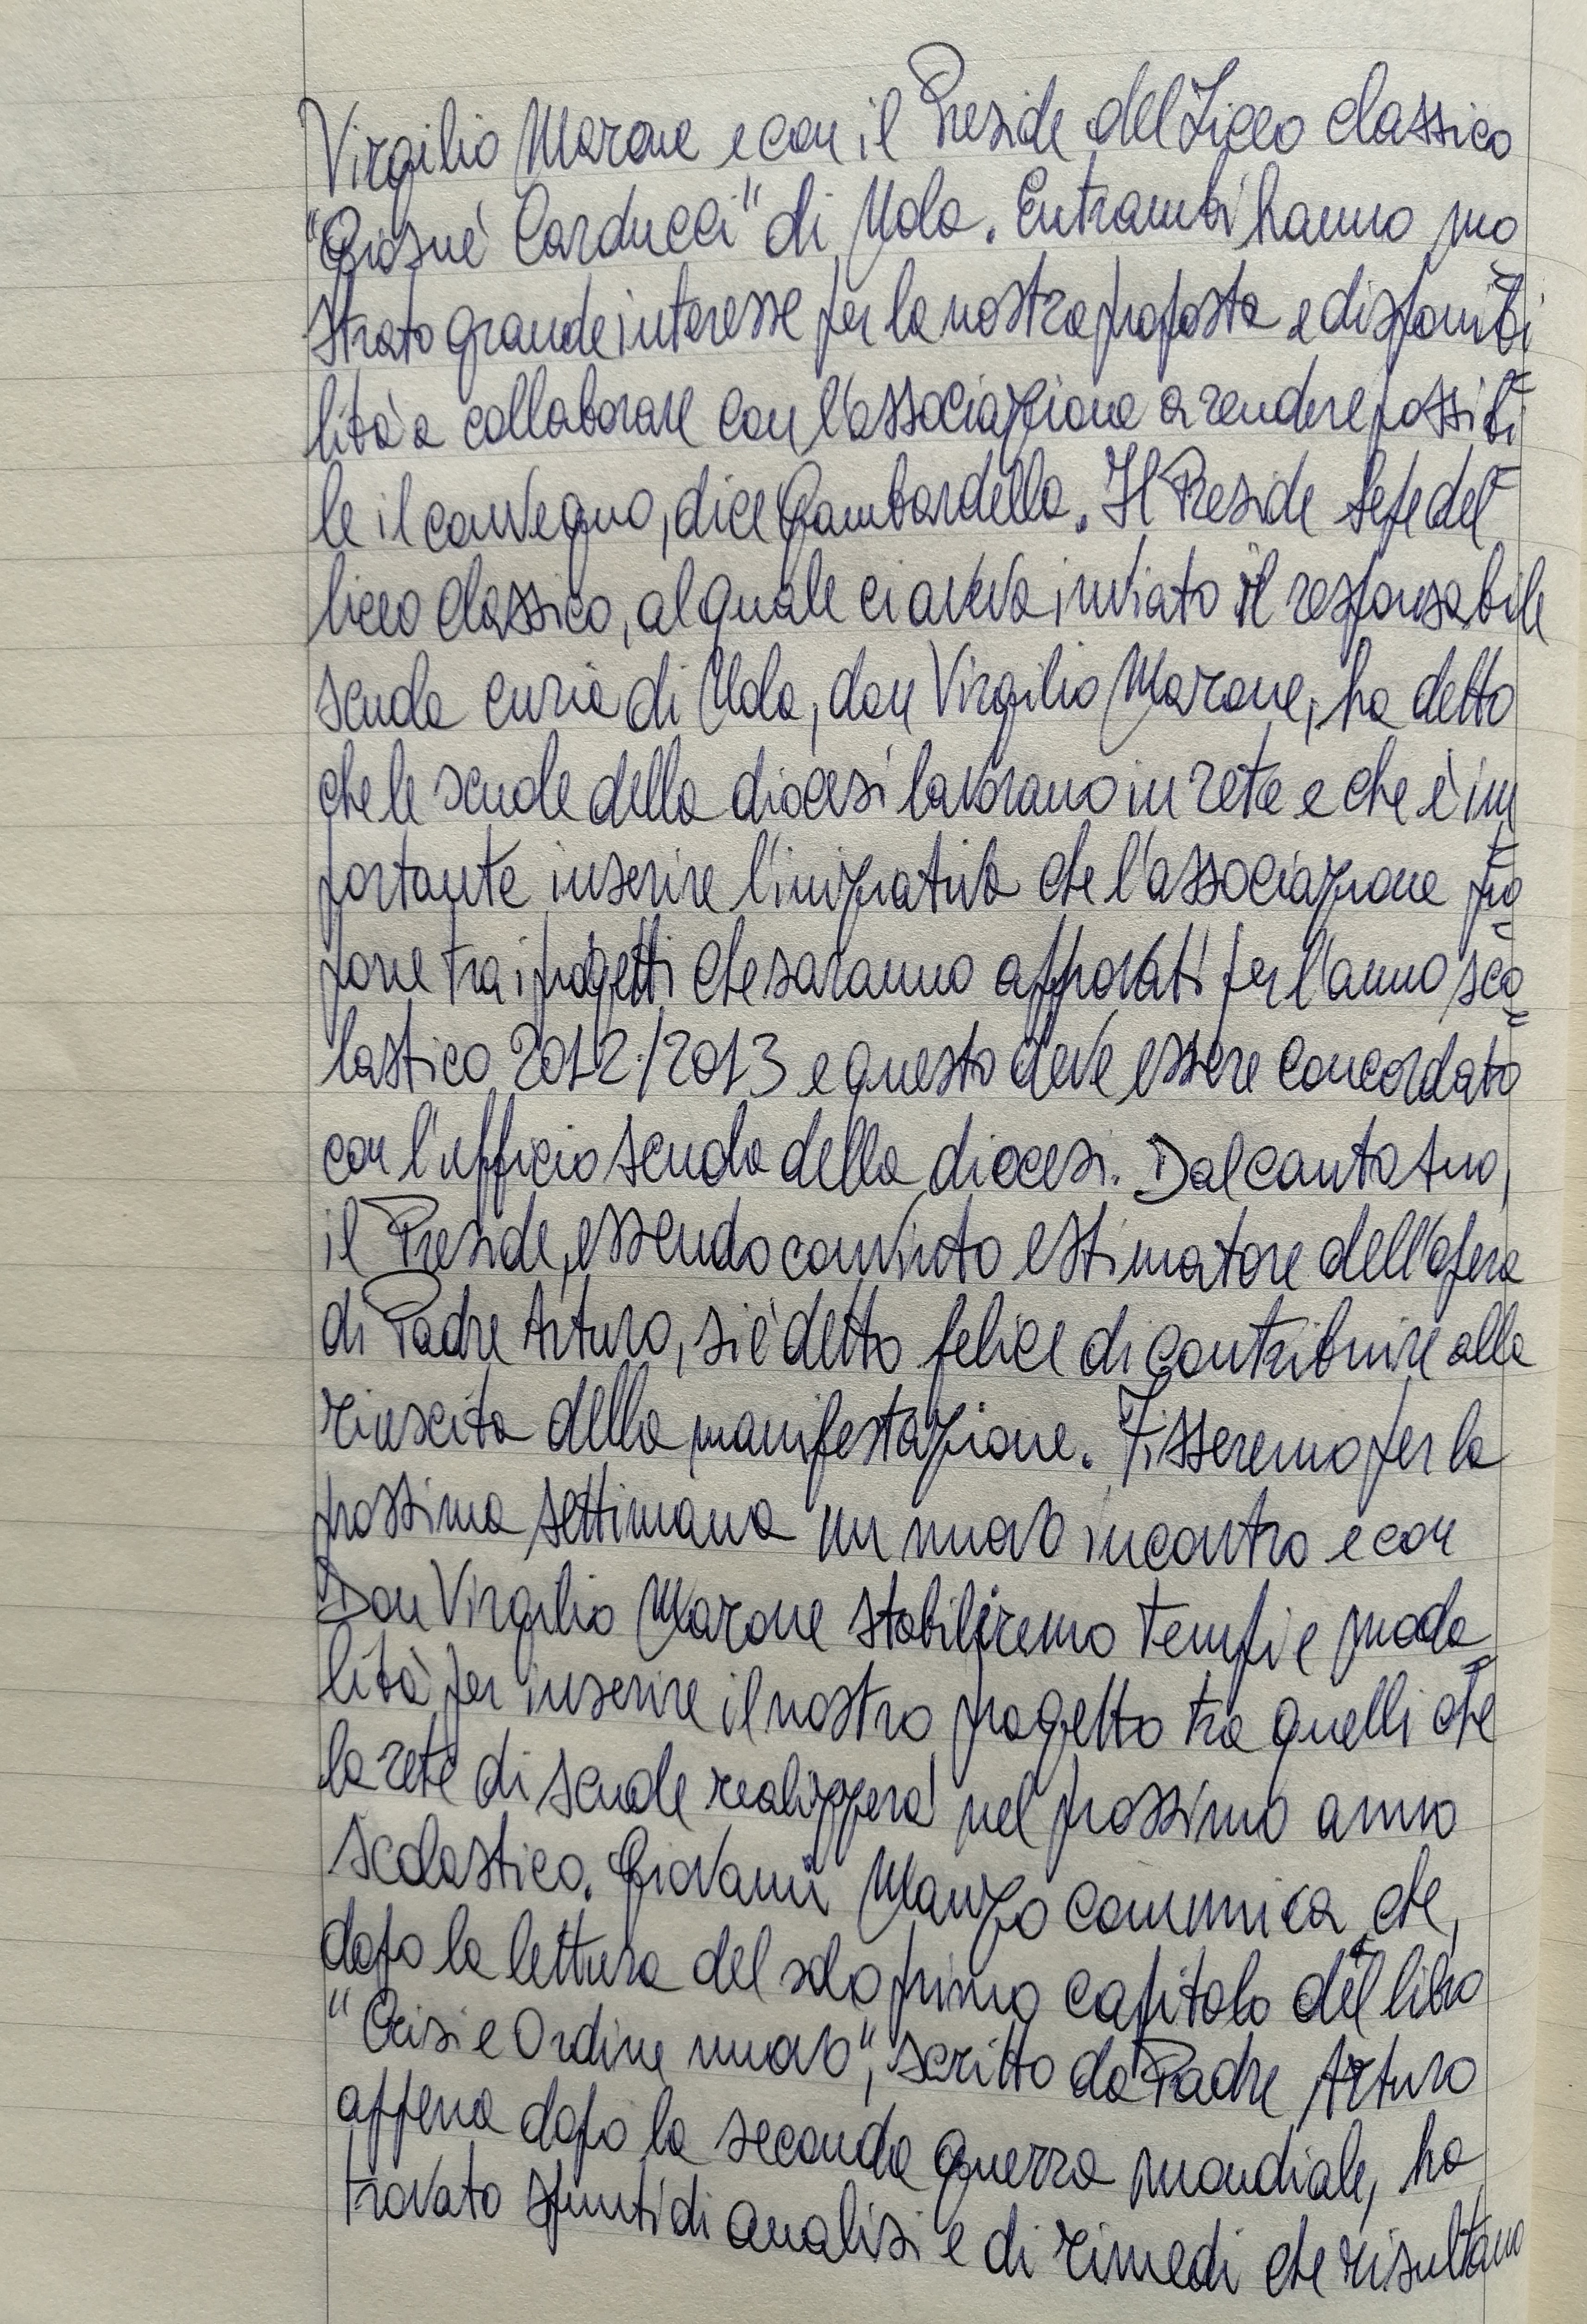 Virgilio Marone e con il Preside del Liceo classico
"Giosuè Carducci" di Nola. Entrambi hanno mo
strato grande interesse per la nostra proposta e disponibi
lità a collaborare con l'associazione a rendere possibi
le il convegno, dice Gambardella. Il Preside Sepe del
liceo classico, al quale ci aveva inviato il responsabile
scuola curia di Nola, don Virgilio Marone, ha detto
che le scuole della diocesi lavorano in rete e che è im
portante inserire l'iniziativa che l'associazione pro
pone tra i progetti che saranno approvati per l'anno sco
lastico 2012/2013 e questo deve essere concordato
con l'ufficio scuola della diocesi. Dal canto suo,
il Preside, essendo convinto estimatore dell'opera
di Padre Arturo, si è detto felice di contribuire alla
riuscita della manifestazione. Fisseremo per la
prossima settimana un nuovo incontro e con
Don Virgilio Marone stabiliremo tempi e moda
lità per inserire il nostro progetto tra quelli che
la rete di scuole realizzerà nel prossimo anno
scolastico. Giovanni Manzo comunica che,
dopo la lettura del solo primo capitolo del libro
"Crisi e Ordine nuovo", scritto da Padre Arturo
appena dopo la seconda guerra mondiale, ha
trovato spunti di analisi e di rimedi che risultano